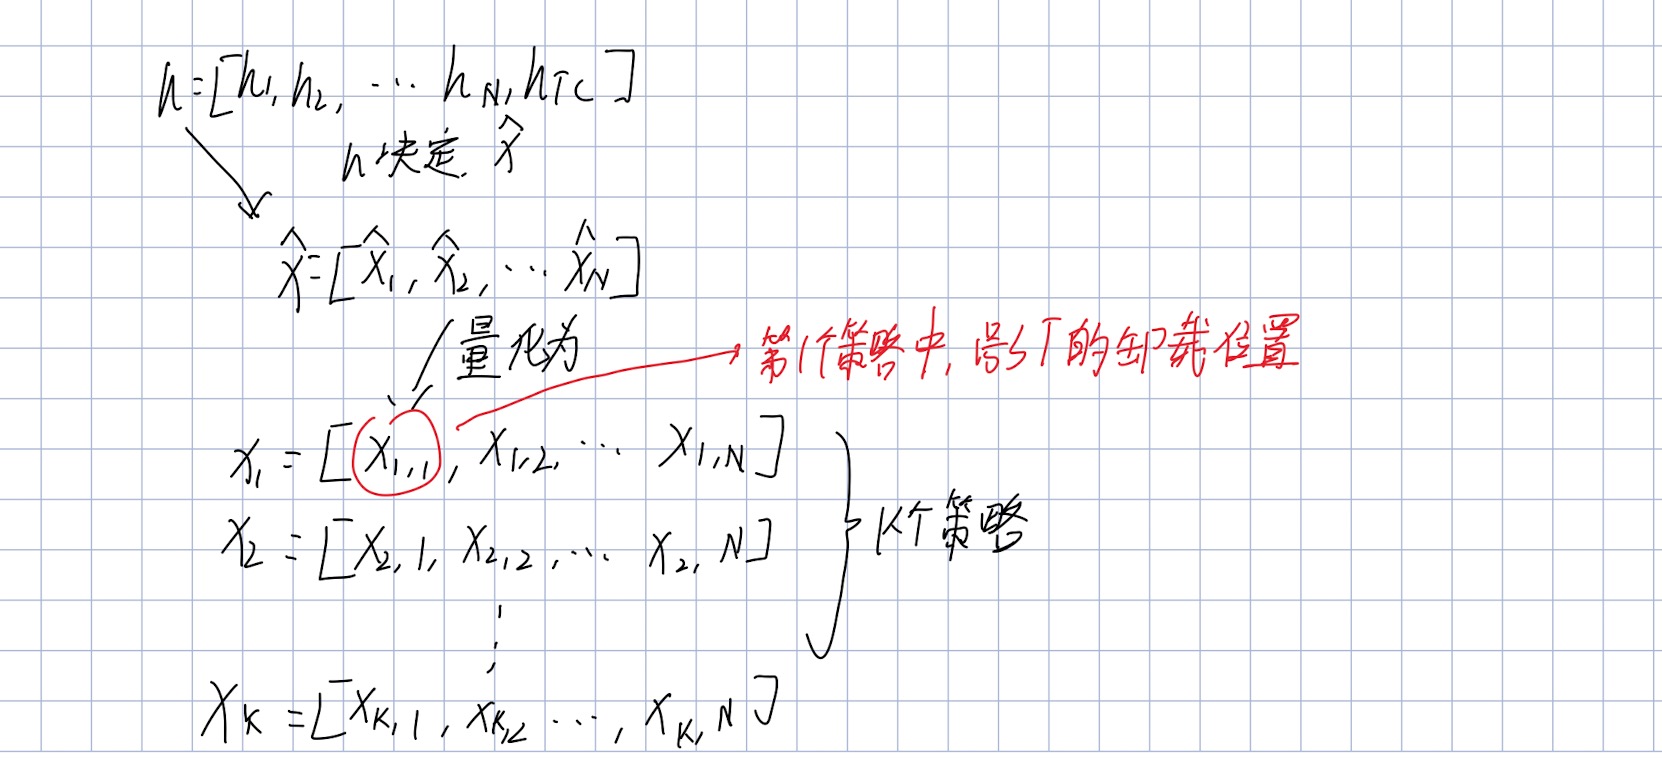 h=[h1, h2, ... hN, hTC]
h决定 x̂
x̂=[x̂1, x̂2, ... x̂N]
量化为
第1个策略中, 的卸载位置
x1 = [x1,1, x1,2, ... x1,N]
x2 = [x2,1, x2,2, ... x2,N]
K个策略
⋮
xK = [xK,1, xK,2 ..., xK,N]